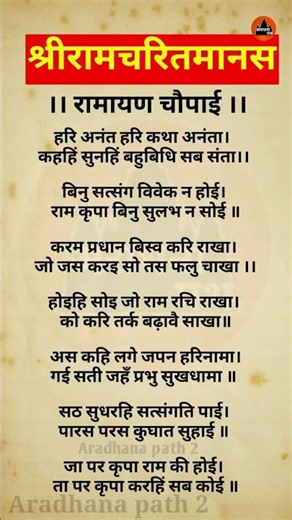 श्रीरामचरितमानस
।। रामायण चौपाई ।।
हरि अनंत हरि कथा अनंता।
कहहिं सुनहिं बहुबिधि सब संता।।
बिनु सत्संग विवेक न होई।
राम कृपा बिनु सुलभ न सोई ॥
करम प्रधान बिस्व करि राखा।
जो जस करइ सो तस फलु चाखा ।।
होइहि सोइ जो राम रचि राखा।
को करि तर्क बढ़ावै साखा॥
अस कहि लगे जपन हरिनामा।
गई सती जहँ प्रभु सुखधामा ॥
सठ सुधरहि सत्संगति पाई।
पारस परस कुघात सुहाई ॥
Aradhana path 2
जा पर कृपा राम की होई।
ता पर कृपा करहिं सब कोई ॥
Aradhana path 2